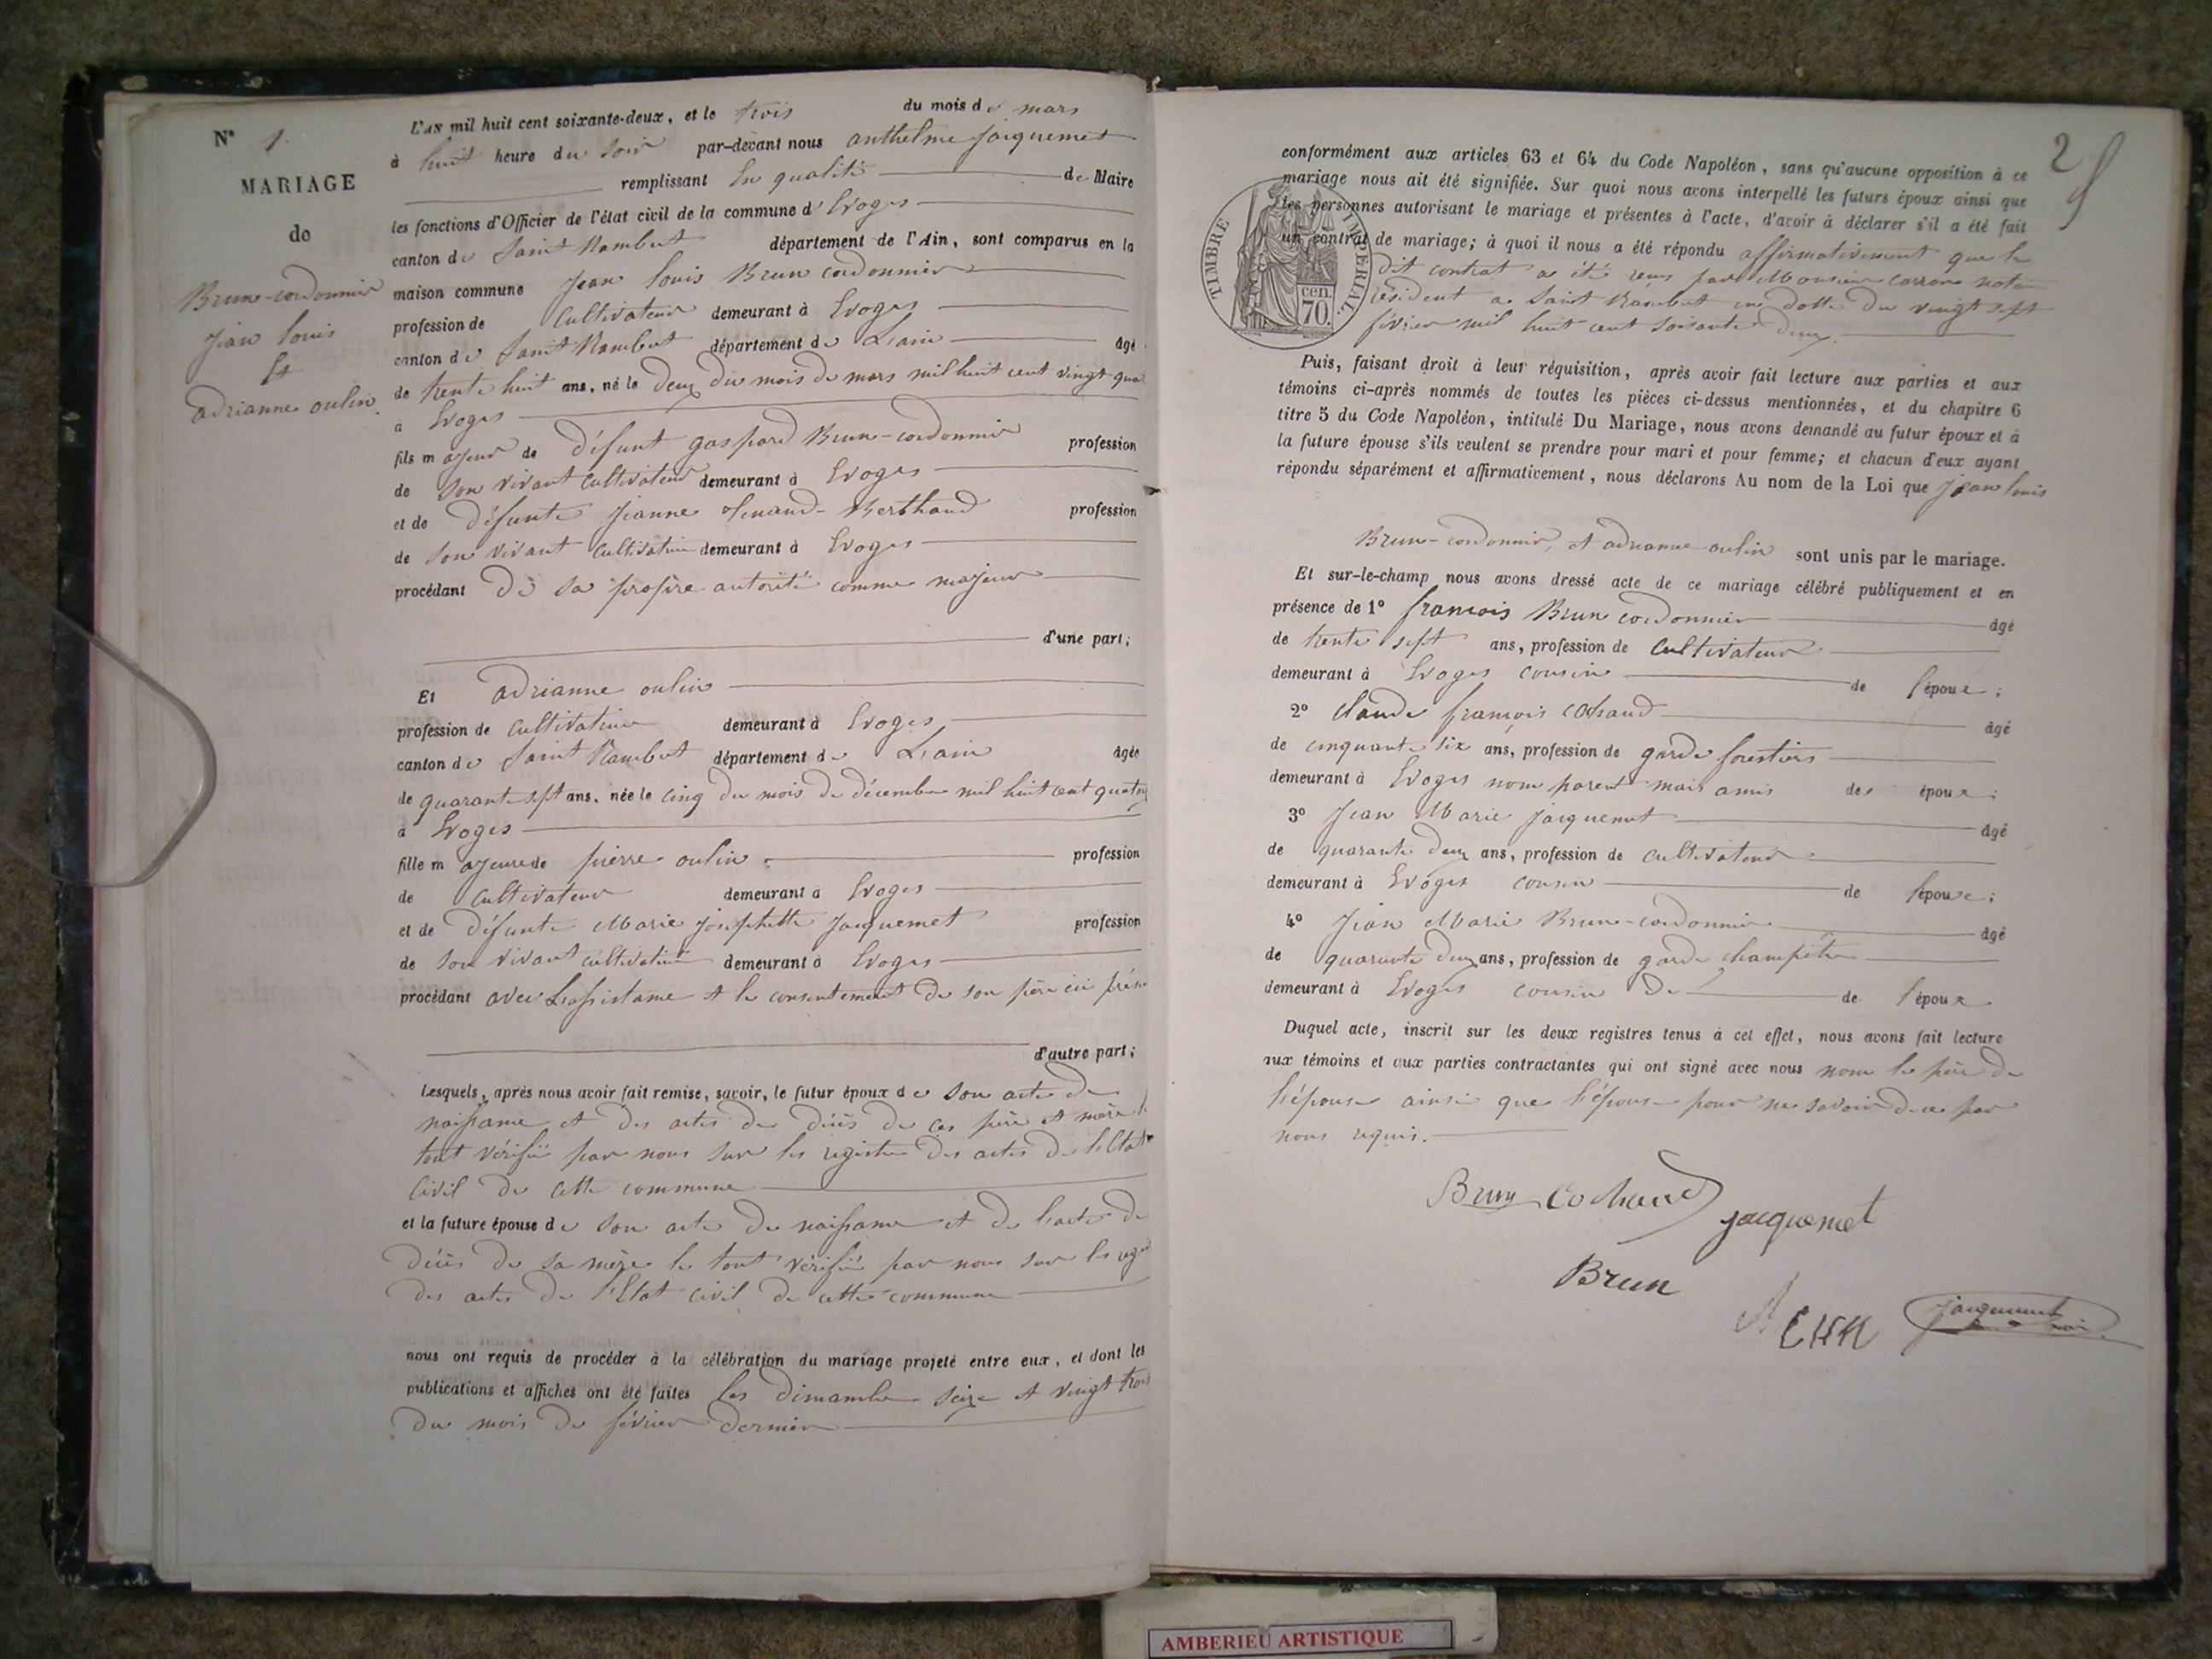 N° 1.
MARIAGE
de
Brun-cordonnier
Jean louis
Et
adrianne oulin
L'AN mil huit cent soixante-deux, et le trois du mois de mars
à huit heure du soir par-devant nous anthelme Jacquemet
remplissant En qualité de Maire
les fonctions d'Officier de l'état civil de la commune d'Evoges
canton de Saint Rambert département de l'Ain, sont comparus en la
maison commune Jean louis Brun cordonnier
profession de Cultivateur demeurant à Evoges
canton de Saint Rambert département de Lain âgé
de trente huit ans, né le deux du mois de mars mil huit cent vingt qua
à Evoges
fils majeur de défunt gaspard Brun-cordonnier profession
de son vivant cultivateur demeurant à Evoges
et de défunte Jeanne Berthaud profession
de son vivant cultivatrice demeurant à Evoges
procédant de sa propre autorité comme majeur
d'une part;
Et adrianne oulin
profession de cultivatrice demeurant à Evoges
canton de Saint Rambert département de Lain âgée
de quarante sept ans, née le cinq du mois de décembre mil huit cent quatorz
à Evoges
fille majeure de pierre oulin profession
de Cultivateur demeurant à Evoges
et de défunte Marie Josephette Jacquemet profession
de son vivant cultivatrice demeurant à Evoges
procédant avec Lassistance et le consentement de son père ici prése
d'autre part;
Lesquels, après nous avoir fait remise, savoir, le futur époux de son acte de
naissance et des actes de décès de ces père et mère l
tout vérifié par nous sur les registre des actes de l'Etat
Civil de cette commune
et la future épouse de son acte de naissance et de l'acte de
décès de sa mère le tout vérifié par nous sur les regis
des actes de l'Etat civil de cette commune
nous ont requis de procéder à la célébration du mariage projeté entre eux, et dont les
publications et affiches ont été faites les dimanche seize et vingt trois
du mois de février dernier
2
conformément aux articles 63 et 64 du Code Napoléon, sans qu'aucune opposition à ce
mariage nous ait été signifiée. Sur quoi nous avons interpellé les futurs époux ainsi que
les personnes autorisant le mariage et présentes à l'acte, d'avoir à déclarer s'il a été fait
un contrat de mariage; à quoi il nous a été répondu affirmativement que le
dit contrat a été reçu par Monsieur notaire
résident a Saint Rambert en datte du vingt sept
février mil huit cent soixante deux.
TIMBRE IMPÉRIAL.
70 cen.
Puis, faisant droit à leur réquisition, après avoir fait lecture aux parties et aux
témoins ci-après nommés de toutes les pièces ci-dessus mentionnées, et du chapitre 6
titre 5 du Code Napoléon, intitulé Du Mariage, nous avons demandé au futur époux et à
la future épouse s'ils veulent se prendre pour mari et pour femme; et chacun d'eux ayant
répondu séparément et affirmativement, nous déclarons Au nom de la Loi que Jean louis
Brun-cordonnier, et adrianne oulin sont unis par le mariage.
Et sur-le-champ nous avons dressé acte de ce mariage célébré publiquement et en
présence de 1° francois Brun cordonnier âgé
de trente sept ans, profession de Cultivateur
demeurant à Evoges cousin de l'époux;
2° Claude françois Cohaud âgé
de cinquante six ans, profession de garde forestier
demeurant à Evoges nom parent mais amis des époux;
3° Jean Marie Jacquemet âgé
de quarante deux ans, profession de cultivateur
demeurant à Evoges cousin de l'épouse;
4° Jean Marie Brun-cordonnier âgé
de quarante deux ans, profession de garde champêtre
demeurant à Evoges cousin de de l'époux
Duquel acte, inscrit sur les deux registres tenus à cet effet, nous avons fait lecture
aux témoins et aux parties contractantes qui ont signé avec nous nom le père de
l'épouse ainsi que l'épouse pour ne savoir de ce par
nous requis.
Brun Cohaud
Jacquemet
Brun
Jacquemet
AMBERIEU ARTISTIQUE